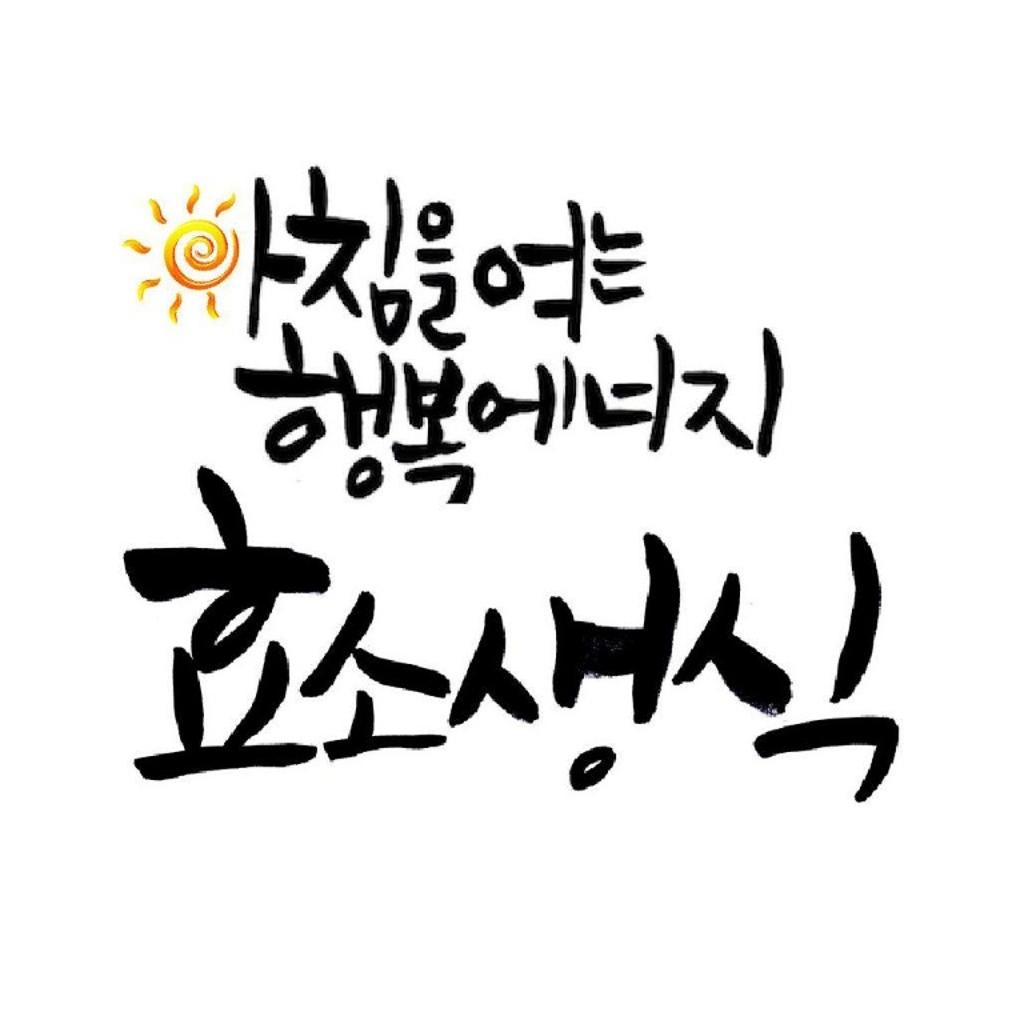 아침을 여는
행복에너지
효소생식